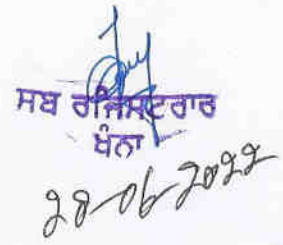 ਸਬ ਰਜਿਸਟਰਾਰ
ਖੰਨਾ
28-06-2022